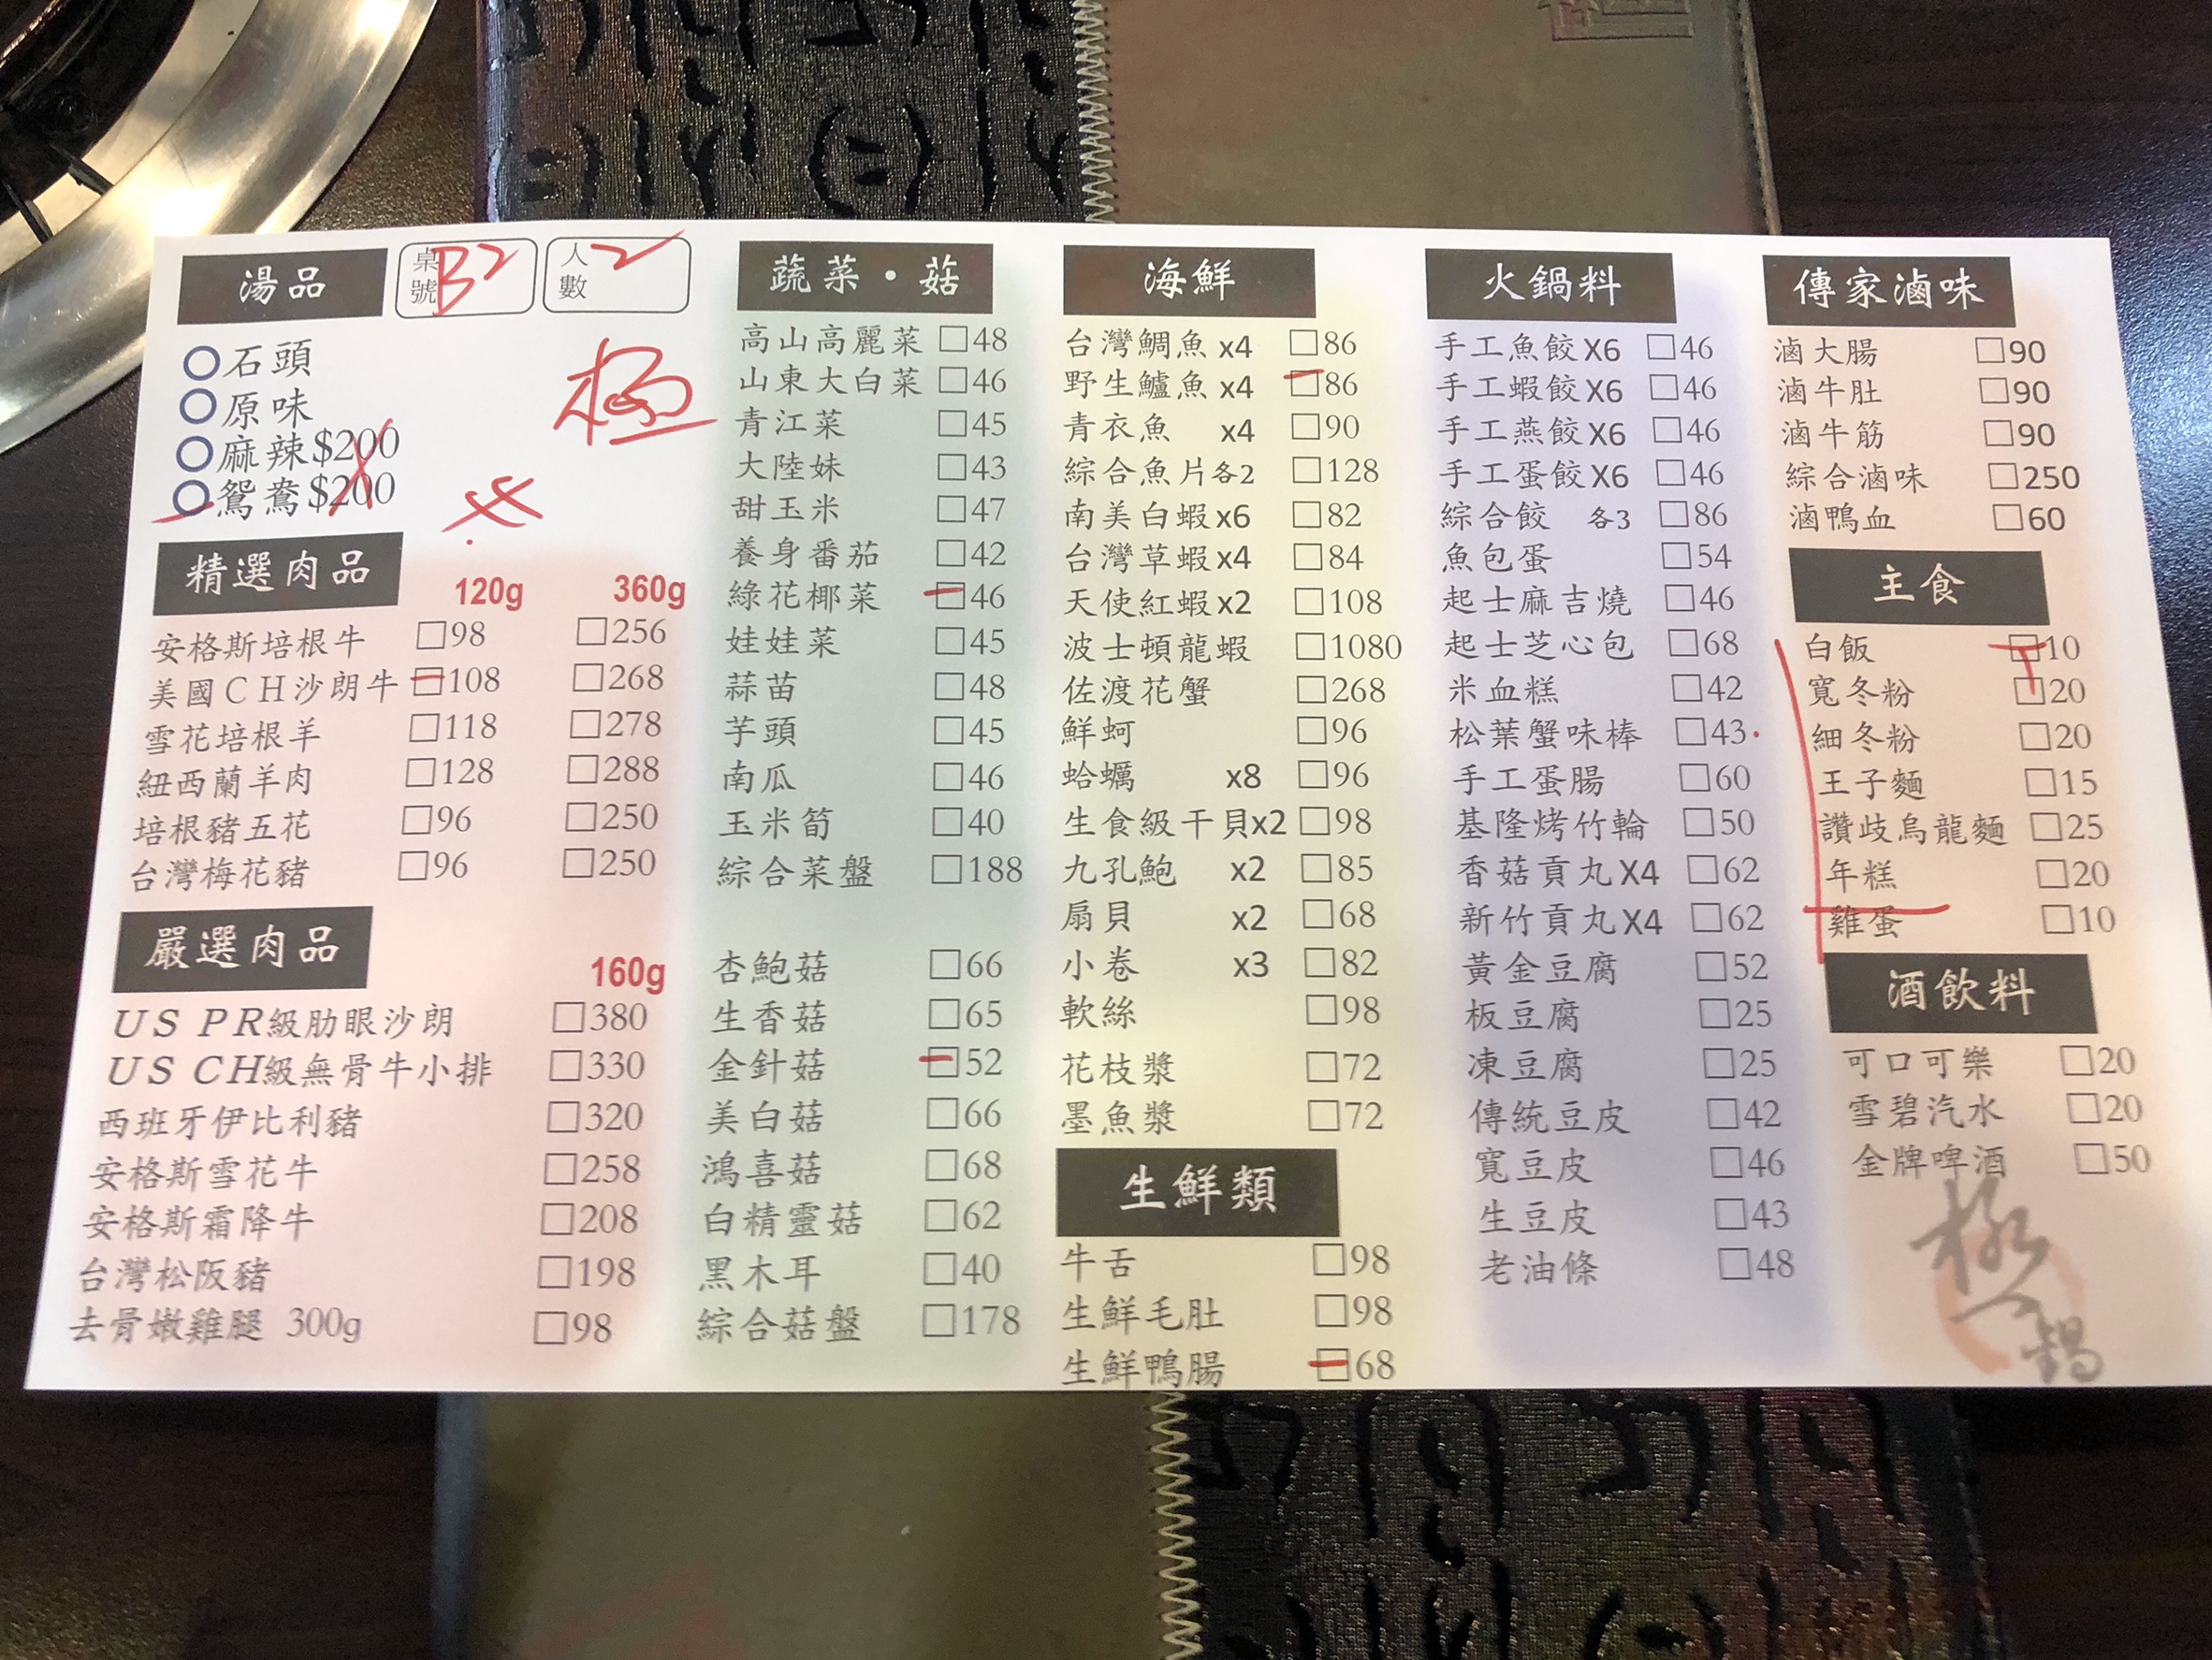 湯品
桌號 B2
人數 2
石頭
原味
麻辣$200
鴛鴦$200
極
精選肉品
120g 360g
安格斯培根牛 □98 □256
美國CH沙朗牛 □108 □268
雪花培根羊 □118 □278
紐西蘭羊肉 □128 □288
培根豬五花 □96 □250
台灣梅花豬 □96 □250
嚴選肉品
160g
US PR級肋眼沙朗 □380
US CH級無骨牛小排 □330
西班牙伊比利豬 □320
安格斯雪花牛 □258
安格斯霜降牛 □208
台灣松阪豬 □198
去骨嫩雞腿 300g □98
蔬菜・菇
高山高麗菜 □48
山東大白菜 □46
青江菜 □45
大陸妹 □43
甜玉米 □47
養身番茄 □42
綠花椰菜 □46
娃娃菜 □45
蒜苗 □48
芋頭 □45
南瓜 □46
玉米筍 □40
綜合菜盤 □188
杏鮑菇 □66
生香菇 □65
金針菇 □52
美白菇 □66
鴻喜菇 □68
白精靈菇 □62
黑木耳 □40
綜合菇盤 □178
海鮮
台灣鯛魚 x4 □86
野生鱸魚 x4 □86
青衣魚 x4 □90
綜合魚片各2 □128
南美白蝦x6 □82
台灣草蝦x4 □84
天使紅蝦x2 □108
波士頓龍蝦 □1080
佐渡花蟹 □268
鮮蚵 □96
蛤蠣 x8 □96
生食級干貝x2 □98
九孔鮑 x2 □85
扇貝 x2 □68
小卷 x3 □82
軟絲 □98
花枝漿 □72
墨魚漿 □72
生鮮類
牛舌 □98
生鮮毛肚 □98
生鮮鴨腸 □68
火鍋料
手工魚餃X6 □46
手工蝦餃X6 □46
手工燕餃X6 □46
手工蛋餃X6 □46
綜合餃 各3 □86
魚包蛋 □54
起士麻吉燒 □46
起士芝心包 □68
米血糕 □42
松葉蟹味棒 □43
手工蛋腸 □60
基隆烤竹輪 □50
香菇貢丸X4 □62
新竹貢丸X4 □62
黃金豆腐 □52
板豆腐 □25
凍豆腐 □25
傳統豆皮 □42
寬豆皮 □46
生豆皮 □43
老油條 □48
傳家滷味
滷大腸 □90
滷牛肚 □90
滷牛筋 □90
綜合滷味 □250
滷鴨血 □60
主食
白飯 □10
寬冬粉 □20
細冬粉 □20
王子麵 □15
讚歧烏龍麵 □25
年糕 □20
雞蛋 □10
酒飲料
可口可樂 □20
雪碧汽水 □20
金牌啤酒 □50
極一鍋